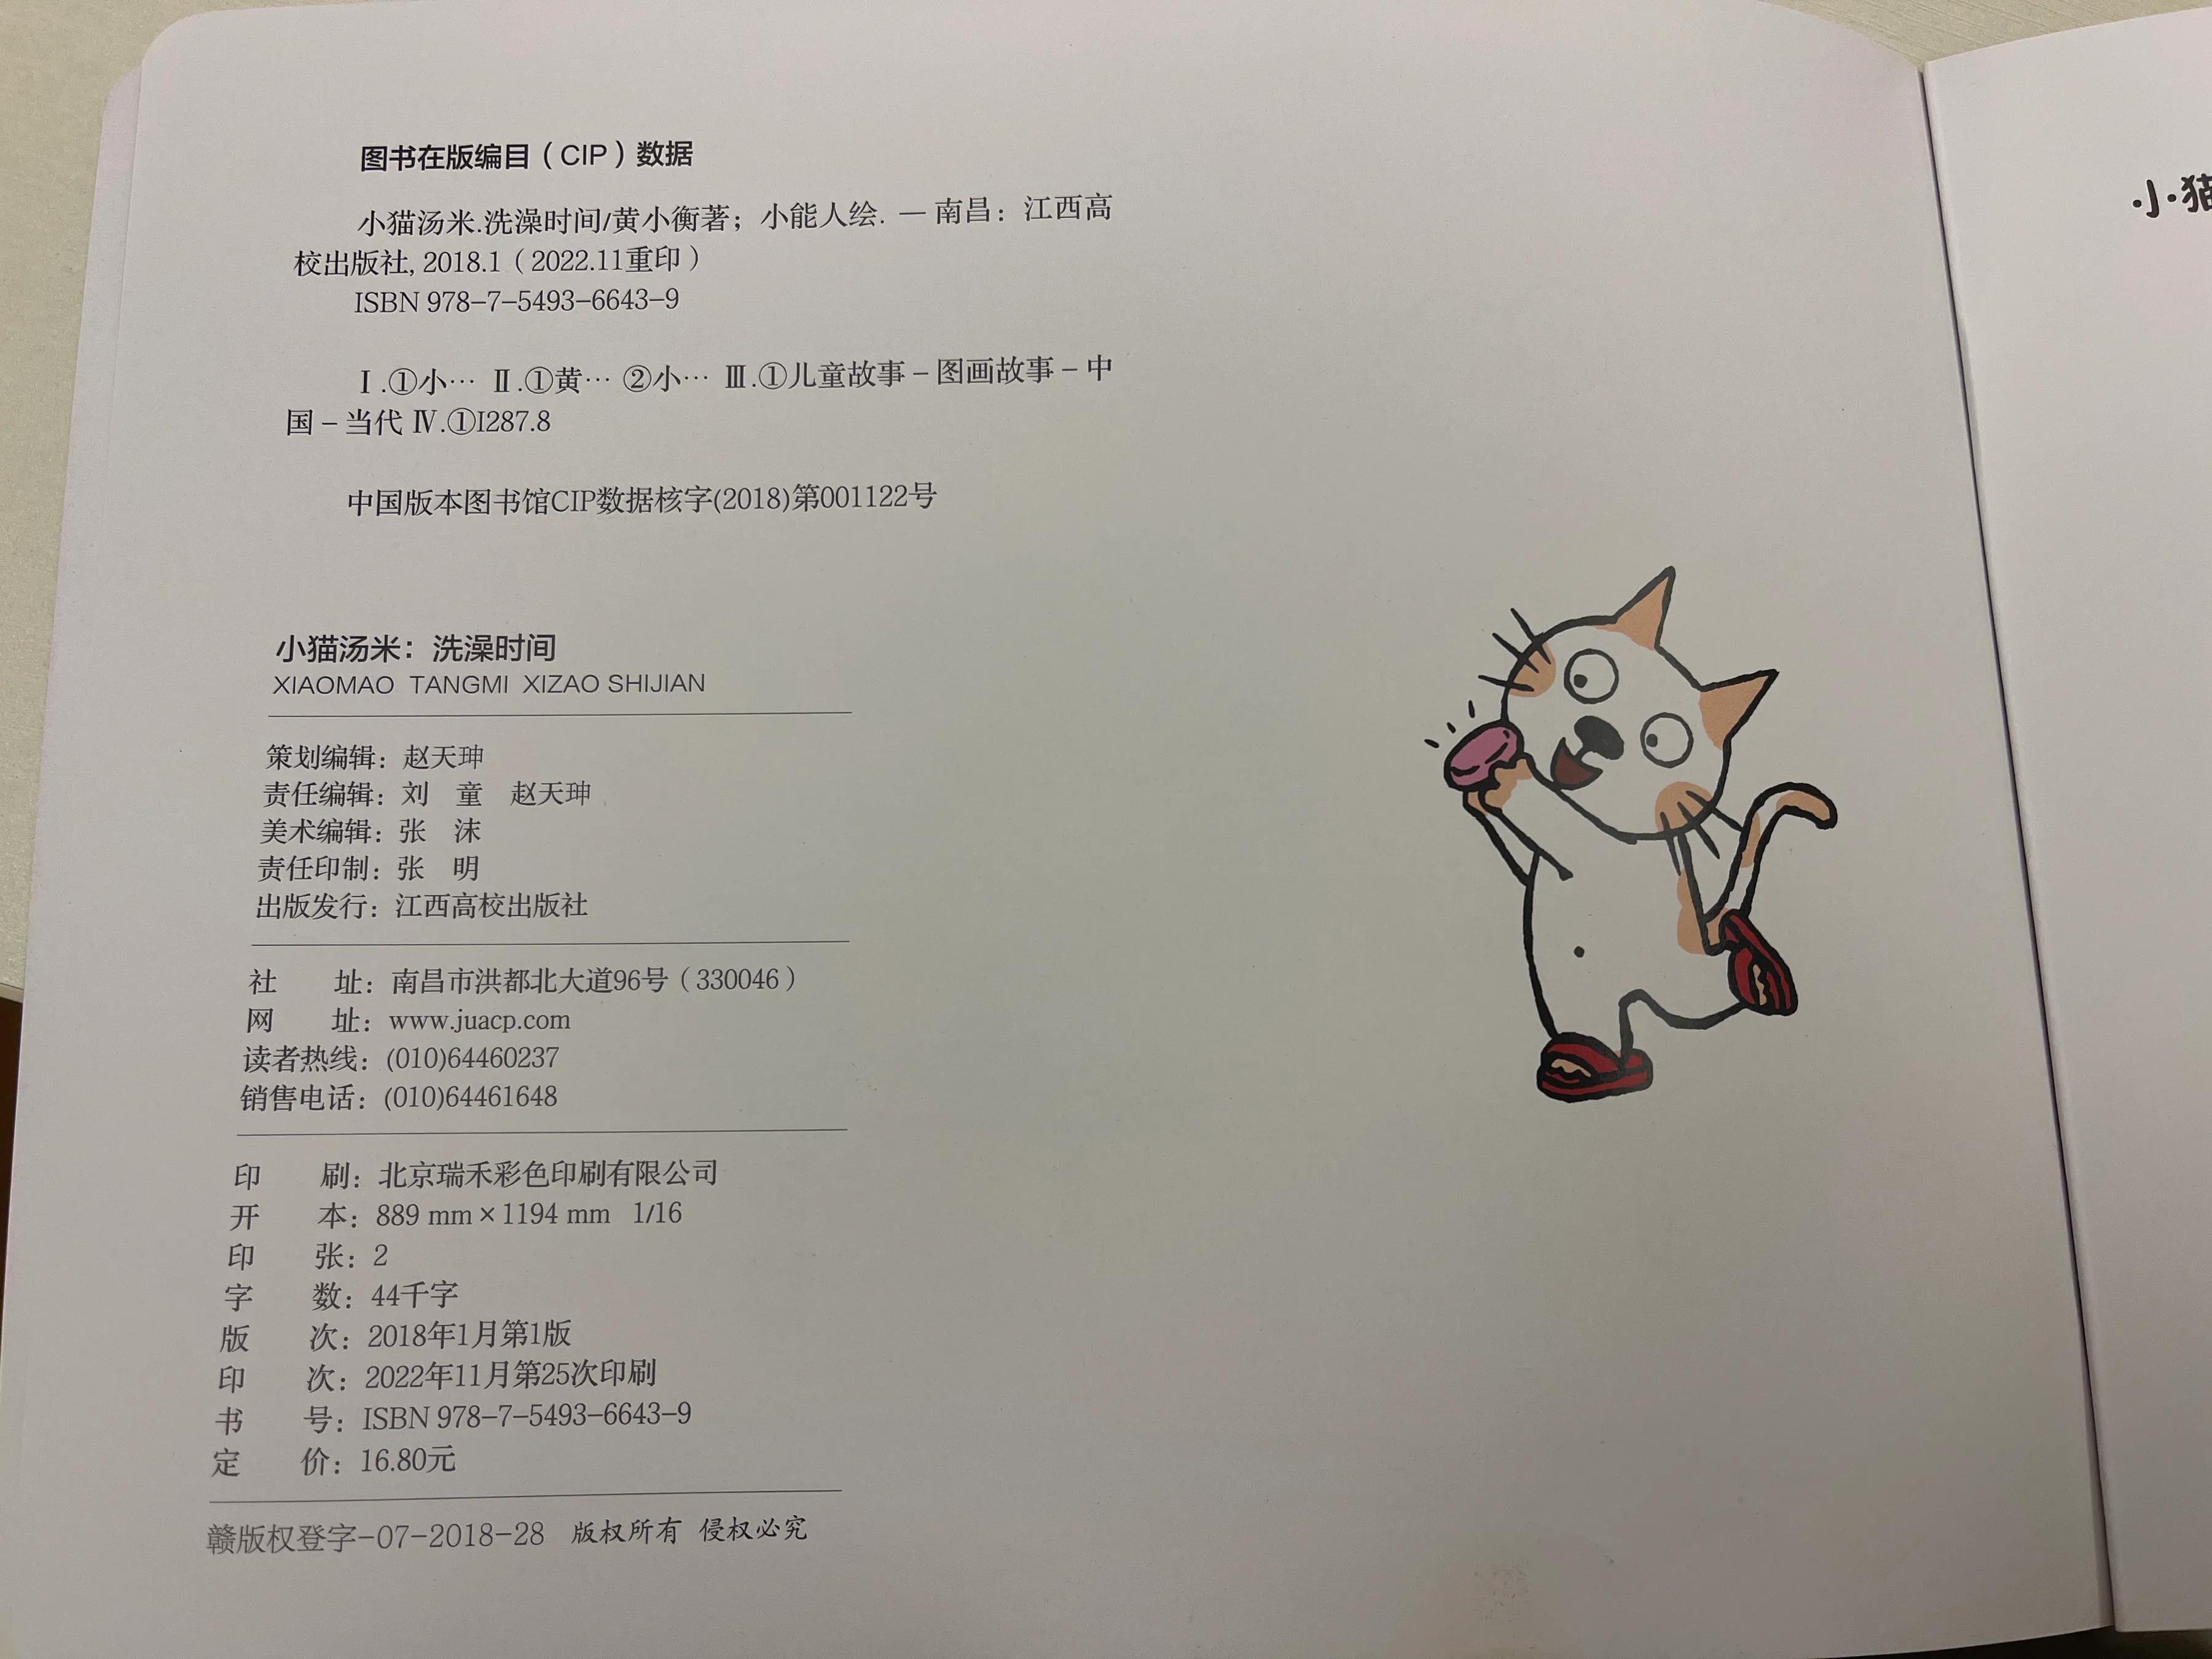 图书在版编目（CIP）数据
小猫汤米.洗澡时间/黄小衡著；小能人绘. — 南昌：江西高
校出版社, 2018.1（2022.11重印）
ISBN 978-7-5493-6643-9
Ⅰ.①小… Ⅱ.①黄… ②小… Ⅲ.①儿童故事－图画故事－中
国－当代 Ⅳ.①I287.8
中国版本图书馆CIP数据核字(2018)第001122号
小猫汤米：洗澡时间
XIAOMAO TANGMI XIZAO SHIJIAN
策划编辑：赵天珅
责任编辑：刘　童　赵天珅
美术编辑：张　沫
责任印制：张　明
出版发行：江西高校出版社
社　　址：南昌市洪都北大道96号（330046）
网　　址：www.juacp.com
读者热线：(010)64460237
销售电话：(010)64461648
印　　刷：北京瑞禾彩色印刷有限公司
开　　本：889 mm×1194 mm 1/16
印　　张：2
字　　数：44千字
版　　次：2018年1月第1版
印　　次：2022年11月第25次印刷
书　　号：ISBN 978-7-5493-6643-9
定　　价：16.80元
赣版权登字-07-2018-28 版权所有 侵权必究
小猫